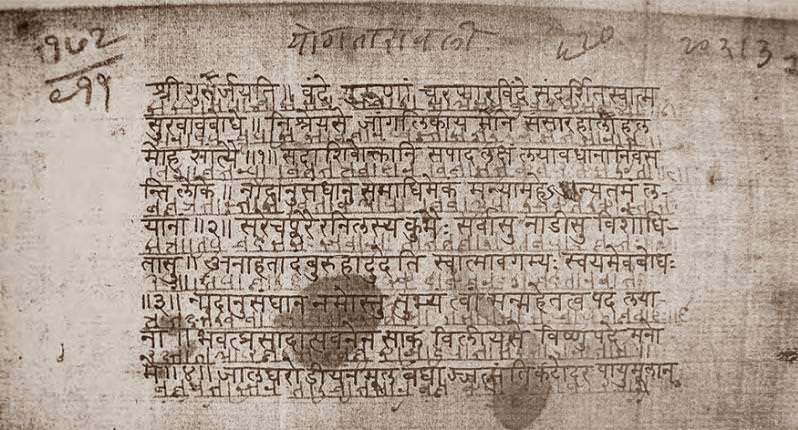 १७६२
२११
योगतारावली
श्रीगुरुर्जयति ॥ वंदे गुरुणां चरणारविंदे संदर्शितस्वात्म
सुखावबोधे ॥ निश्रेयसे जांगलिकायमाने संसारहालाहल
मोह शात्यै ॥१॥ सदाशिवोक्तानि सपादलक्षं लयावधानानि वस
न्ति लोके ॥ नादानुसंधान समाधिमेकं मन्यामहेऽ न्यतमं ल-
यानां ॥२॥ सरेचपूरैरनिलस्य कुंभैः सर्वासु नाडीसु विशोधि-
तासु ॥ अनाहतादंबुरुहादुदेति स्वात्मावगम्यः स्वयमेवबोधः
॥३॥ नादानुसंधान नमोस्तु तुभ्यं त्वां मन्महे तत्व पदं लया-
नां ॥ भवत्प्रसादात्पवनेन साकं विलीयते विष्णुपदे मनो
मे ॥४॥ जालंधरोड्डीयनमूलबंधा कंठोदरपायुमूलान्